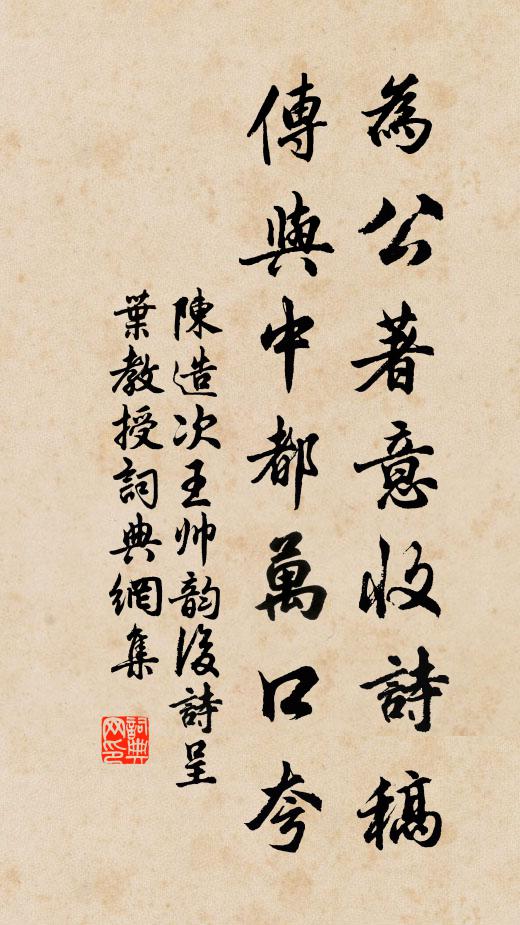 為公著意收詩稿
傳與中都萬口夸
陳造次王帅韵後詩呈
葉教授詞典網集
詞典网印